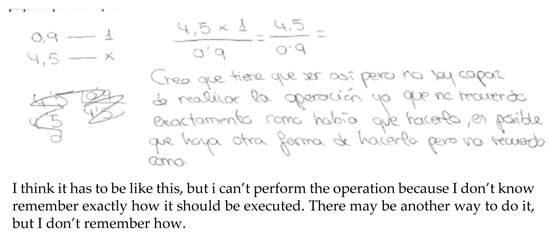 0,9 — 1
4,5 — x
4,5 x 1 / 0'9 = 4,5 / 0'9 =
Creo que tiene que ser así pero no soy capaz
de realizar la operación ya que no recuerdo
exactamente como había que hacerlo, es posible
que haya otra forma de hacerlo pero no recuerdo
cómo.
I think it has to be like this, but i can't perform the operation because I don't know
remember exactly how it should be executed. There may be another way to do it,
but I don't remember how.